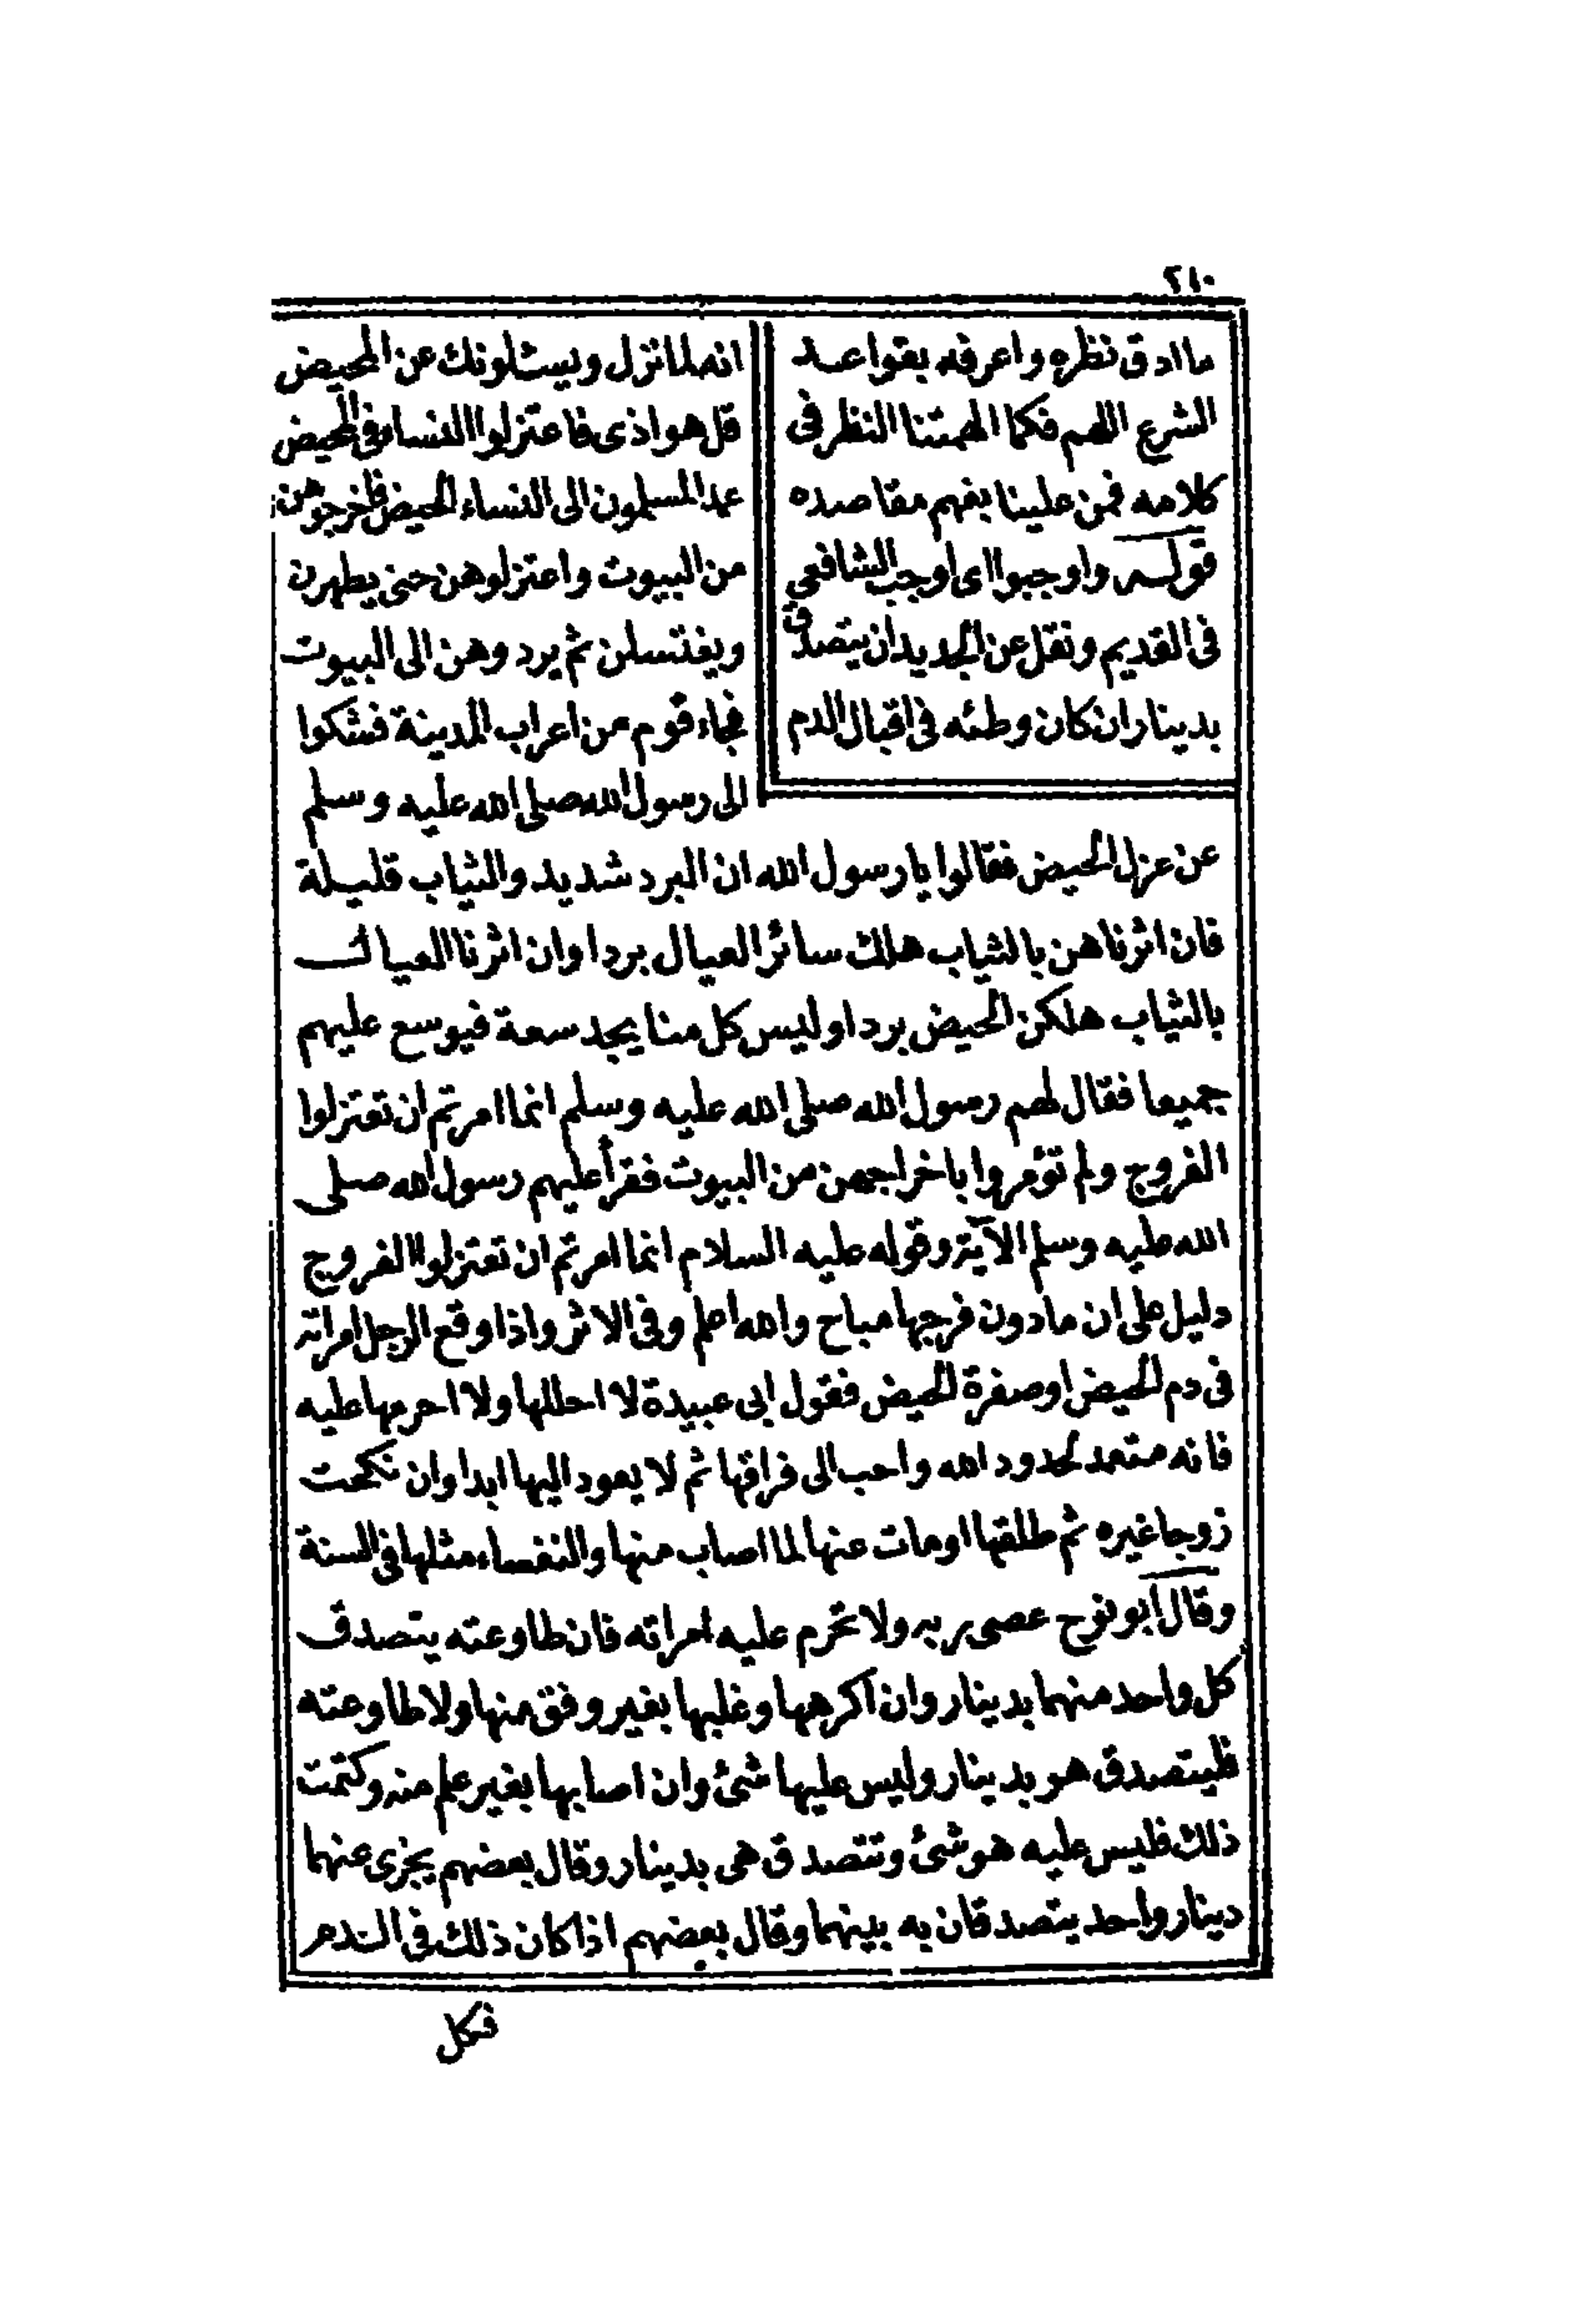 ٢١٠
ما ادق نظره واعرفه بقواعد
الشرع اللهم فكما الهمتنا النظر فى
كلامه فمن علينا بفهم مقاصده
قوله واوجبوا اى اوجب الشافعى
فى القديم ونقل عن الجديد ان يتصدق
بدينار ان كان وطئه فى اقبال الدم
انه لما نزل ويسئلونك عن المحيض
قل هو اذى فاعتزلوا النساء فى المحيض
عمد المسلمون الى النساء الحيض فاخرجوهن
من البيوت واعتزلوهن حتى يطهرن
ويغتسلن ثم يردوهن الى البيوت
فجاء قوم من اعراب المدينة فشكوا
الى رسول الله صلى الله عليه وسلم
عن عزل الحيض فقالوا يا رسول الله ان البرد شديد والثياب قليلة
فان اثرناهن بالثياب هلك سائر العيال بردا وان اثرنا العيال
بالثياب هلكن الحيض بردا وليس كل منا يجد سعة فيوسع عليهم
جميعا فقال لهم رسول الله صلى الله عليه وسلم انما امرتم ان تعتزلوا
الفروج ولم تؤمروا باخراجهن من البيوت فقرأ عليهم رسول الله صلى
الله عليه وسلم الآية وقوله عليه السلام انما امرتم ان تعتزلوا الفروج
دليل على ان ما دون فرجها مباح والله اعلم وفى الاثر واذا وقع الرجل امراته
فى دم الحيض او صفرة الحيض فقول ابى عبيدة لا احللها ولا احرمها عليه
فانه متعمد لحدود الله واحب الى فراقها ثم لا يعود اليها ابدا وان نكحت
زوجا غيره ثم طلقها او مات عنها لما اصاب منها والنفساء مثلها فى السنة
وقال ابو نوح عصى ربه ولا تحرم عليه امراته فان طاوعته يتصدق
كل واحد منهما بدينار وان اكرهها وغلبها بغير وفق منها ولا طاوعته
فليتصدق هو بدينار وليس عليها شئ وان اصابها بغير علم منه وكتمت
ذلك فليس عليه هو شئ وتتصدق هى بدينار وقال بعضهم يجزى عنهما
دينار واحد يتصدقان به بينهما وقال بعضهم اذا كان ذلك فى الدم
فكل